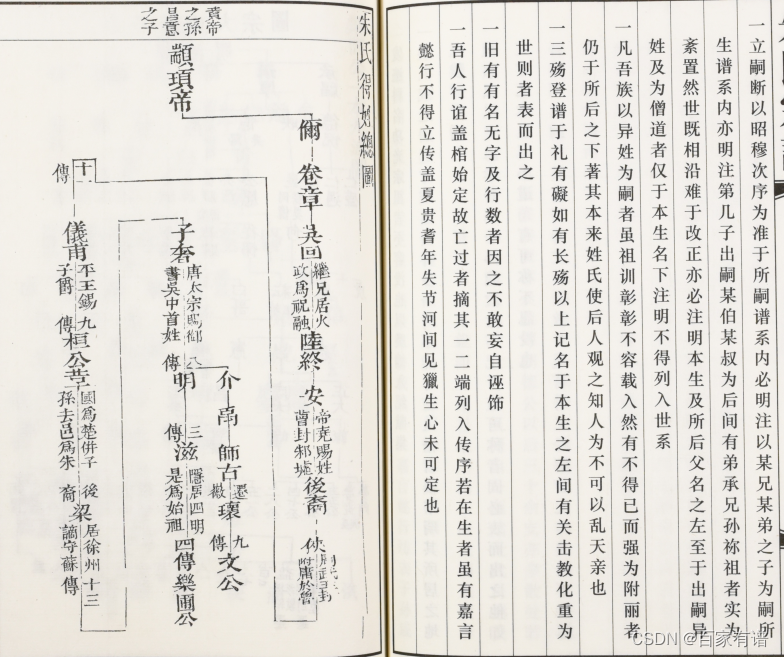 一立嗣断以昭穆次序为准于所嗣谱系内必明注以某兄某弟之子为嗣所
生谱系内亦明注第几子出嗣某伯某叔为后间有弟承兄孙祢祖者实为
紊置然世既相沿难于改正亦必注明本生及所后父名之左至于出嗣异
姓及为僧道者仅于本生名下注明不得列入世系
一凡吾族以异姓为嗣者虽祖训彰彰不容载入然有不得已而强为附丽者
仍于所后之下著其本来姓氏使后人观之知人为不可以乱天亲也
一三殇登谱于礼有礙如有长殇以上记名于本生之左间有关击教化重为
世则者表而出之
一旧有有名无字及行数者因之不敢妄自诬饰
一吾人行谊盖棺始定故亡过者摘其一二端列入传序若在生者虽有嘉言
懿行不得立传盖夏贵耆年失节河间见獵生心未可定也
朱氏得姓總圖
黄帝
之孫
昌意
之子
顓頊帝
卷章
吳回
繼兄居火
政爲祝融
陸終
安
帝堯賜姓
曹封邾墟
後裔
俠
附庸於魯
十一
傳
儀甫
平王錫
子爵
九
傳
桓公革
國爲楚併子
孫去邑爲朱
後
裔
梁
居徐州
謫守蘇
十三
傳
子奢
唐太宗賜御
書吳中首姓
八
傳
明
三
傳
滋
隱居四明
是爲始祖
四傳樂圃公
介
禹
師古
還
徽
瓌
九
傳
文公
CSDN @百家有谱